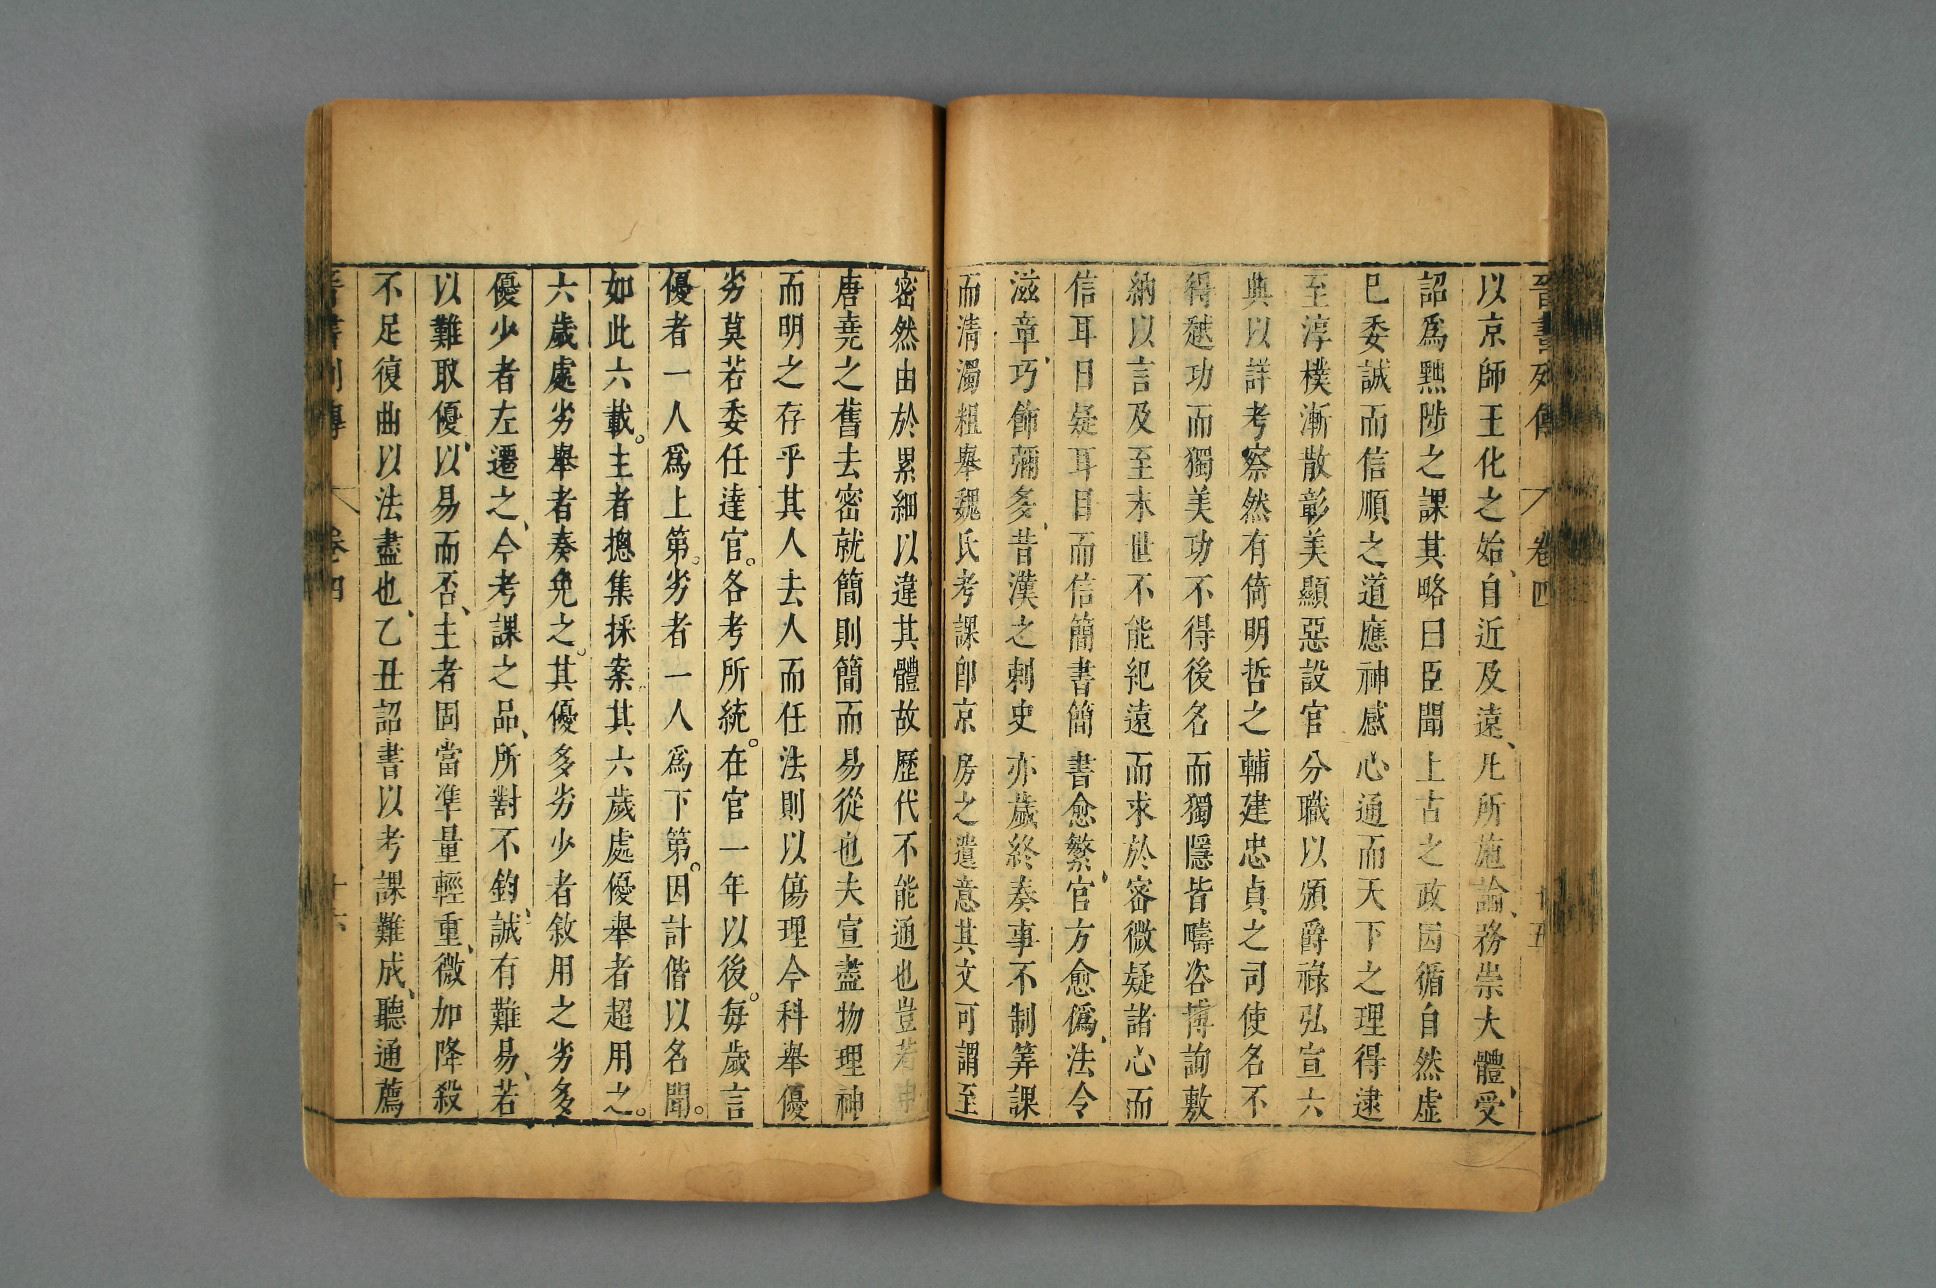 晉書列傳 卷四 十五
以京師王化之始、自近及遠、凡所施論、務崇大體、受
詔爲黜陟之課其略曰臣聞上古之政因循自然虛
巳委誠而信順之道應神感心通而天下之理得逮
至淳樸漸散彰美顯惡設官分職以頒爵祿弘宣六
典以詳考察然有倚明哲之輔建忠貞之司使名不
得越功而獨美功不得後名而獨隱皆疇咨博詢敷
納以言及至末世不能紀遠而求於密微疑諸心而
信耳目疑耳目而信簡書簡書愈繁、官方愈僞、法令
滋章、巧飾彌多、昔漢之刺史亦歲終奏事不制筭課
而清濁粗舉魏氏考課卽京房之遺意其文可謂至
密然由於累細以違其體故歷代不能通也豈若申
唐堯之舊去密就簡則簡而易從也夫宣盡物理神
而明之存乎其人去人而任法則以傷理今科舉優
劣莫若委任達官。各考所統。在官一年以後。每歲言
優者一人爲上第。劣者一人爲下第。因計偕以名聞。
如此六載。主者摠集採案其六歲處優舉者超用之。
六歲處劣舉者奏免之。其優多劣少者敘用之劣多
優少者左遷之、今考課之品、所對不鈞、誠有難易、若
以難取優、以易而否、主者固當凖量輕重、微加降殺
不足復曲以法盡也、乙丑詔書以考課難成、聽通薦
晉書列傳 卷四 十六